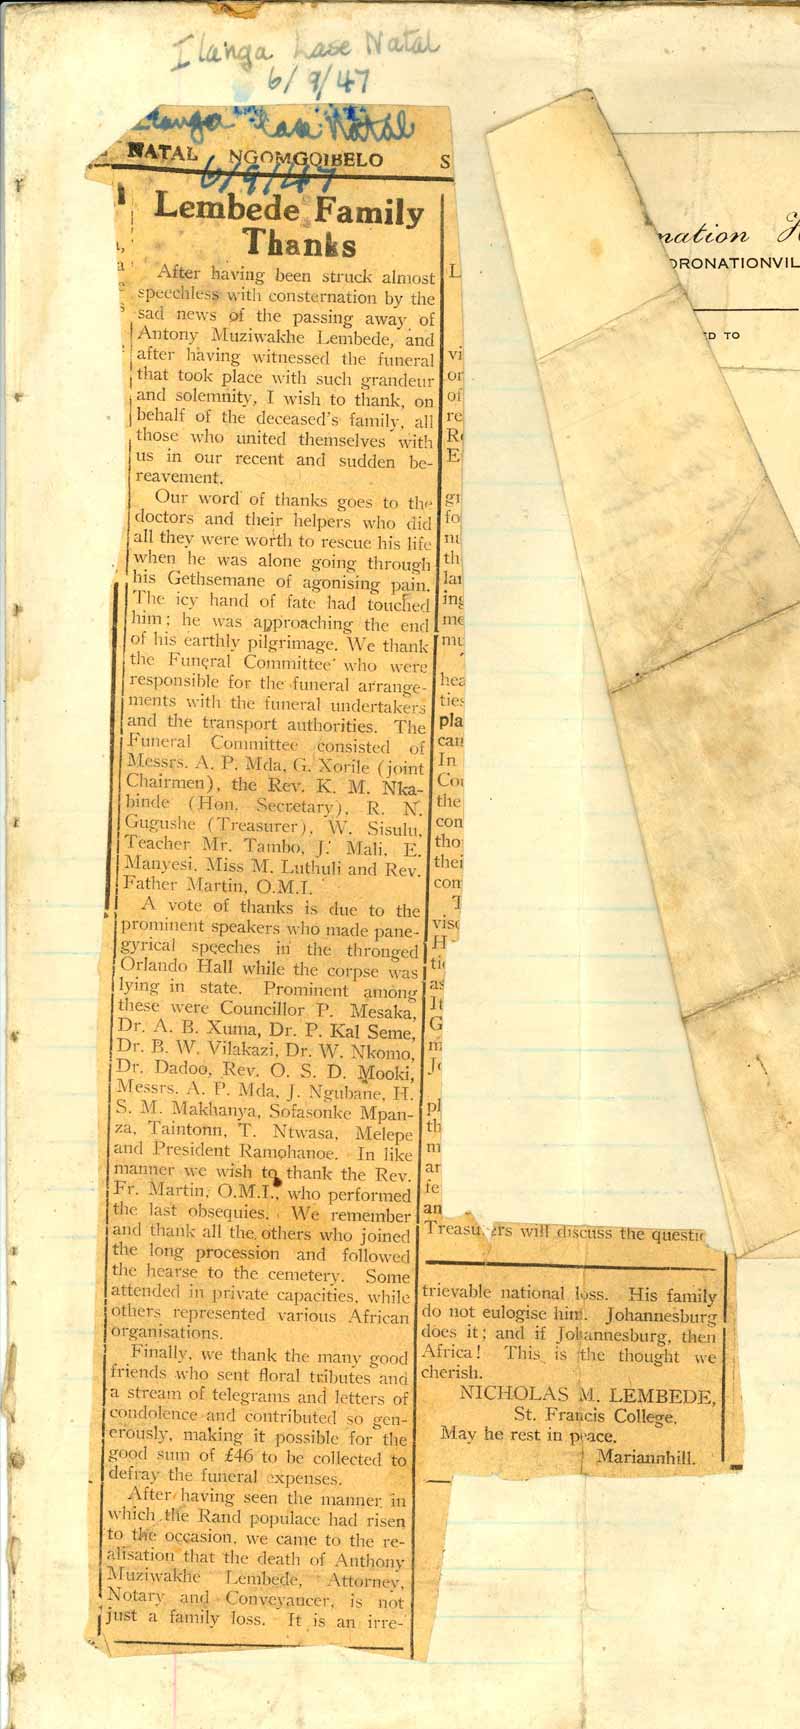 Ilanga Lase Natal
6/9/47
Ilanga Lase Natal
NATAL NGOMGQIBELO S
6/9/47
Lembede Family
Thanks
After having been struck almost
speechless with consternation by the
sad news of the passing away of
Antony Muziwakhe Lembede, and
after having witnessed the funeral
that took place with such grandeur
and solemnity, I wish to thank, on
behalf of the deceased's family, all
those who united themselves with
us in our recent and sudden be-
reavement.
Our word of thanks goes to the
doctors and their helpers who did
all they were worth to rescue his life
when he was alone going through
his Gethsemane of agonising pain.
The icy hand of fate had touched
him; he was approaching the end
of his earthly pilgrimage. We thank
the Funeral Committee who were
responsible for the funeral arrange-
ments with the funeral undertakers
and the transport authorities. The
Funeral Committee consisted of
Messrs. A. P. Mda, G. Xorile (joint
Chairmen), the Rev. K. M. Nka-
binde (Hon. Secretary), R. N.
Gugushe (Treasurer), W. Sisulu,
Teacher Mr. Tambo, J. Mali, E.
Manyesi, Miss M. Luthuli and Rev.
Father Martin, O.M.I.
A vote of thanks is due to the
prominent speakers who made pane-
gyrical speeches in the thronged
Orlando Hall while the corpse was
lying in state. Prominent among
these were Councillor P. Mesaka,
Dr. A. B. Xuma, Dr. P. Kal Seme,
Dr. B. W. Vilakazi, Dr. W. Nkomo,
Dr. Dadoo, Rev. O. S. D. Mooki,
Messrs. A. P. Mda, J. Ngubane, H.
S. M. Makhanya, Sofasonke Mpan-
za, Taintonn, T. Ntwasa, Melepe
and President Ramohanoe. In like
manner we wish to thank the Rev.
Fr. Martin, O.M.I., who performed
the last obsequies. We remember
and thank all the others who joined
the long procession and followed
the hearse to the cemetery. Some
attended in private capacities, while
others represented various African
organisations.
Finally, we thank the many good
friends who sent floral tributes and
a stream of telegrams and letters of
condolence and contributed so gen-
erously, making it possible for the
good sum of £46 to be collected to
defray the funeral expenses.
After having seen the manner in
which the Rand populace had risen
to the occasion, we came to the re-
alisation that the death of Anthony
Muziwakhe Lembede, Attorney,
Notary and Conveyancer, is not
just a family loss. It is an irre-
Treasurers will discuss the questio
trievable national loss. His family
do not eulogise him. Johannesburg
does it; and if Johannesburg, then
Africa! This is the thought we
cherish.
NICHOLAS M. LEMBEDE,
St. Francis College,
May he rest in peace.
Mariannhill.
nation H
ORONATIONVIL
ED TO